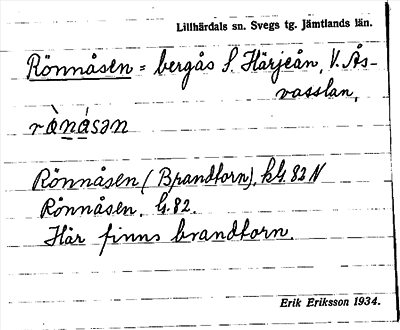 Lillhärdals sn. Svegs tg. Jämtlands län.
Rönnåsen = bergås S. Härjeån, V. Ås-
vasslan,
rò̀násən
Rönnåsen (Brandtorn), kG. 82 N
Rönnåsen. G. 82.
Här finns brandtorn.
Erik Eriksson 1934.